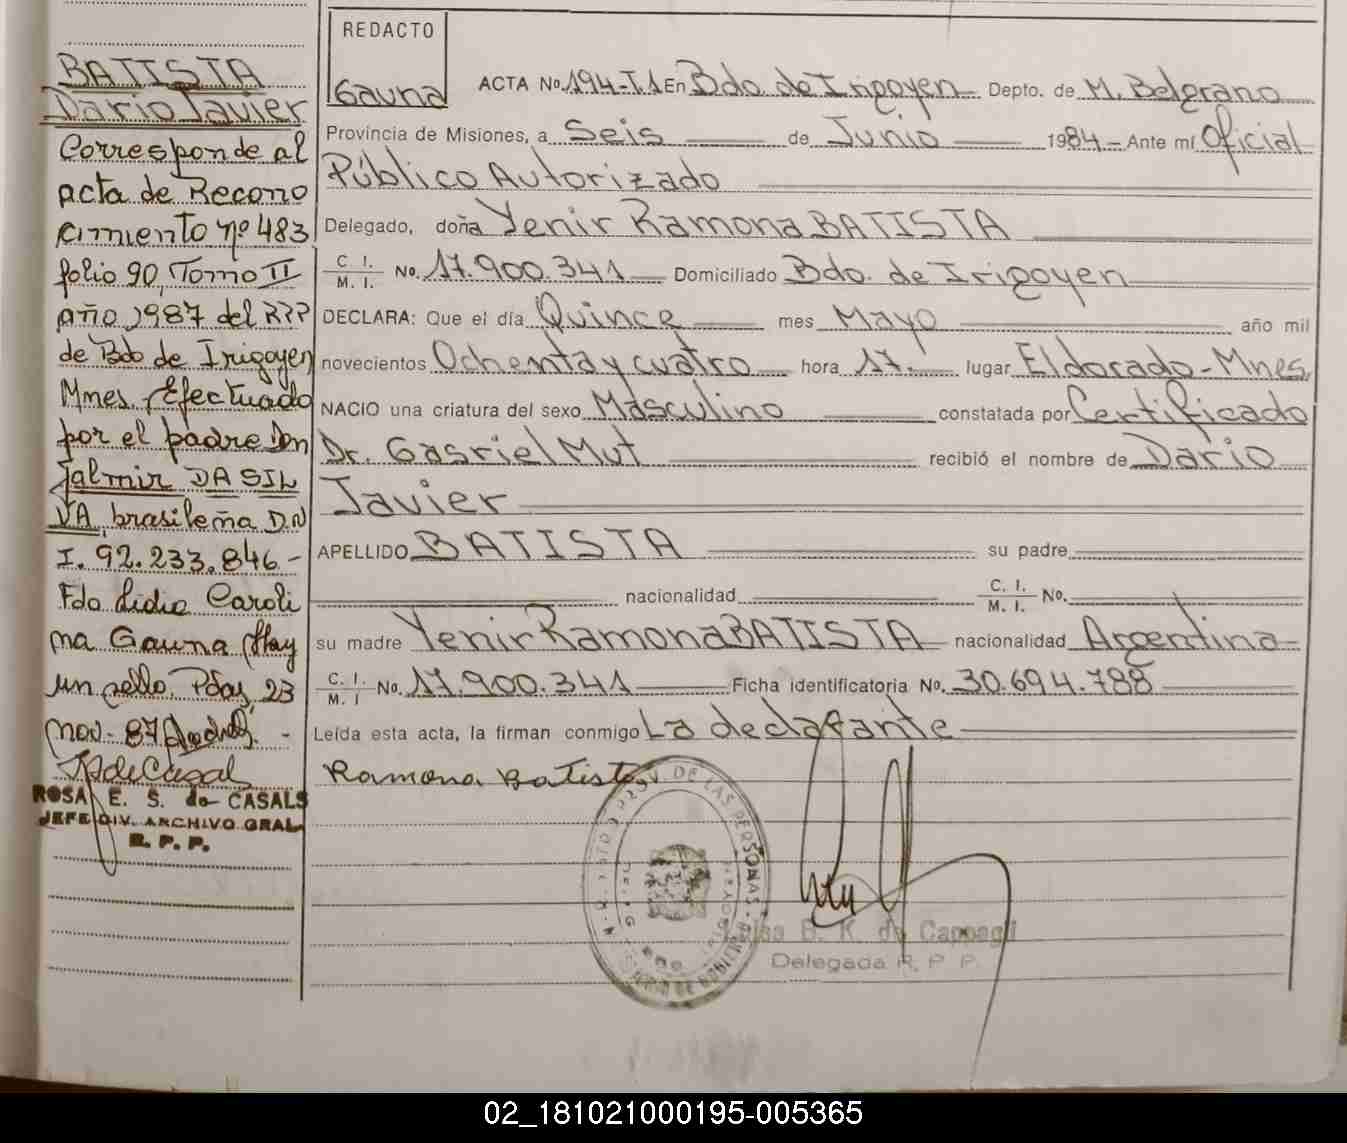 BATISTA
Dario Javier
Corresponde al
acta de Recono
cimiento nº 483
folio 90, Tomo II
año 1987 del RPP
de Bdo de Irigoyen
Mnes, Efectuado
por el padre Don
Jalmir DA SIL
VA, brasileña D.N
I. 92.233.846-
Fdo Lidia Caroli
na Gauna (Hay
un sello. Pdas, 23
nov- 87
ROSA E. S. de CASALS
JEFE DIV. ARCHIVO GRAL.
R. P. P.
REDACTO
Gauna
ACTA No. 194-T.1 En Bdo. de Irigoyen Depto. de M. Belgrano
Provincia de Misiones, a Seis de Junio 1984- Ante mí Oficial
Público Autorizado
Delegado, doña Yenir Ramona BATISTA
C. I.
M. I. No. 17.900.341 Domiciliado Bdo. de Irigoyen
DECLARA: Que el día Quince mes Mayo año mil
novecientos Ochenta y cuatro hora 17. lugar Eldorado-Mnes
NACIO una criatura del sexo Masculino constatada por Certificado
Dr. Gasriel Mut recibió el nombre de Dario
Javier
APELLIDO BATISTA su padre
nacionalidad C. I.
M. I. No.
su madre Yenir Ramona BATISTA nacionalidad Argentina
C. I.
M. I No. 17.900.341 Ficha identificatoria No. 30.694.788
Leída esta acta, la firman conmigo La declarante
Ramona Batista
DE LAS PERSONAS
B. K. de Cappagli
Delegada R. P. P.
02_181021000195-005365